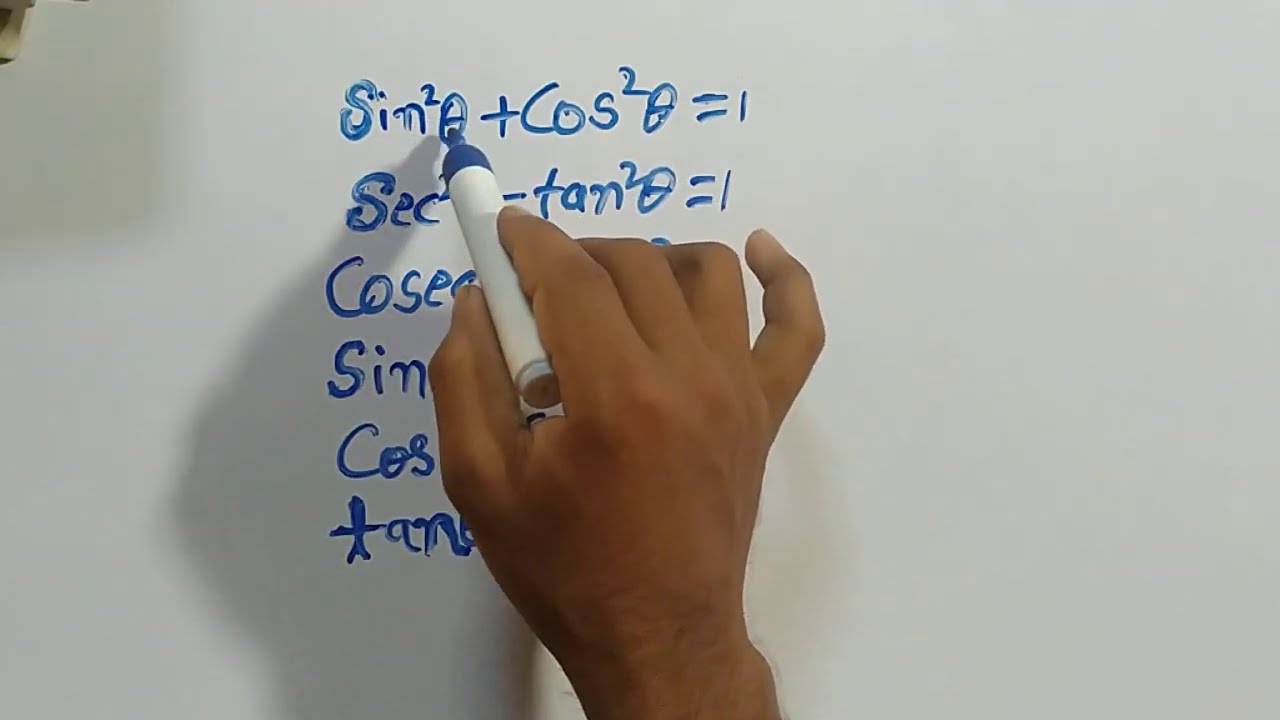 Sin²θ + Cos²θ = 1
Sec² - tan²θ = 1
Cosec
Sin
Cos
tan